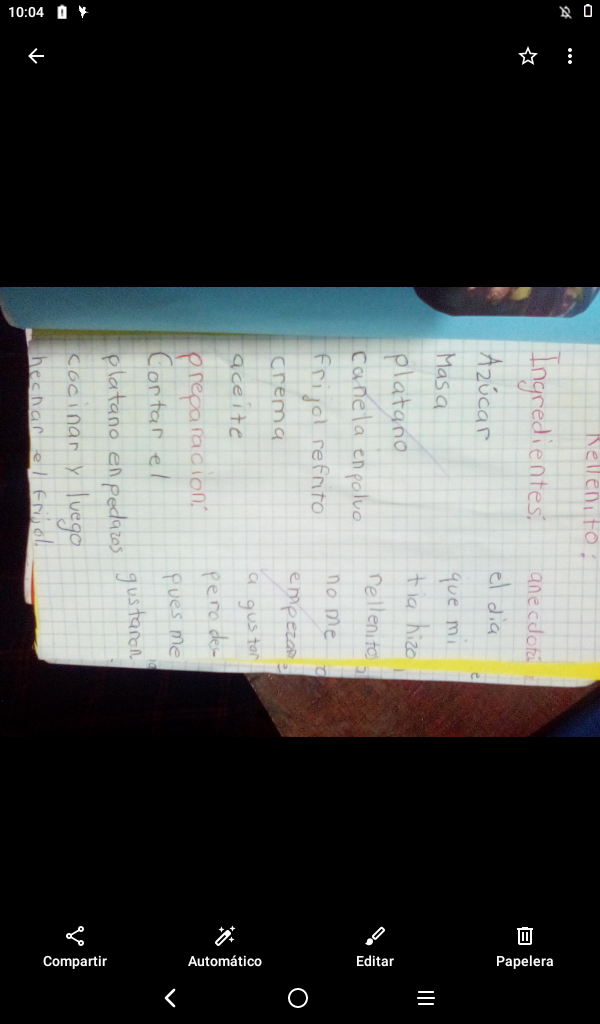 10:04
Rellenito:
Ingredientes:
Azúcar
Masa
platano
canela en polvo
frijol refrito
crema
aceite
preparacion:
Cortar el
platano en pedazos
cocinar y luego
hechar el frijol
anecdota
el dia
que mi
tia hizo
rellenito
no me
empezar
a gustar
pero des-
pues me
gustaron.
Compartir
Automático
Editar
Papelera